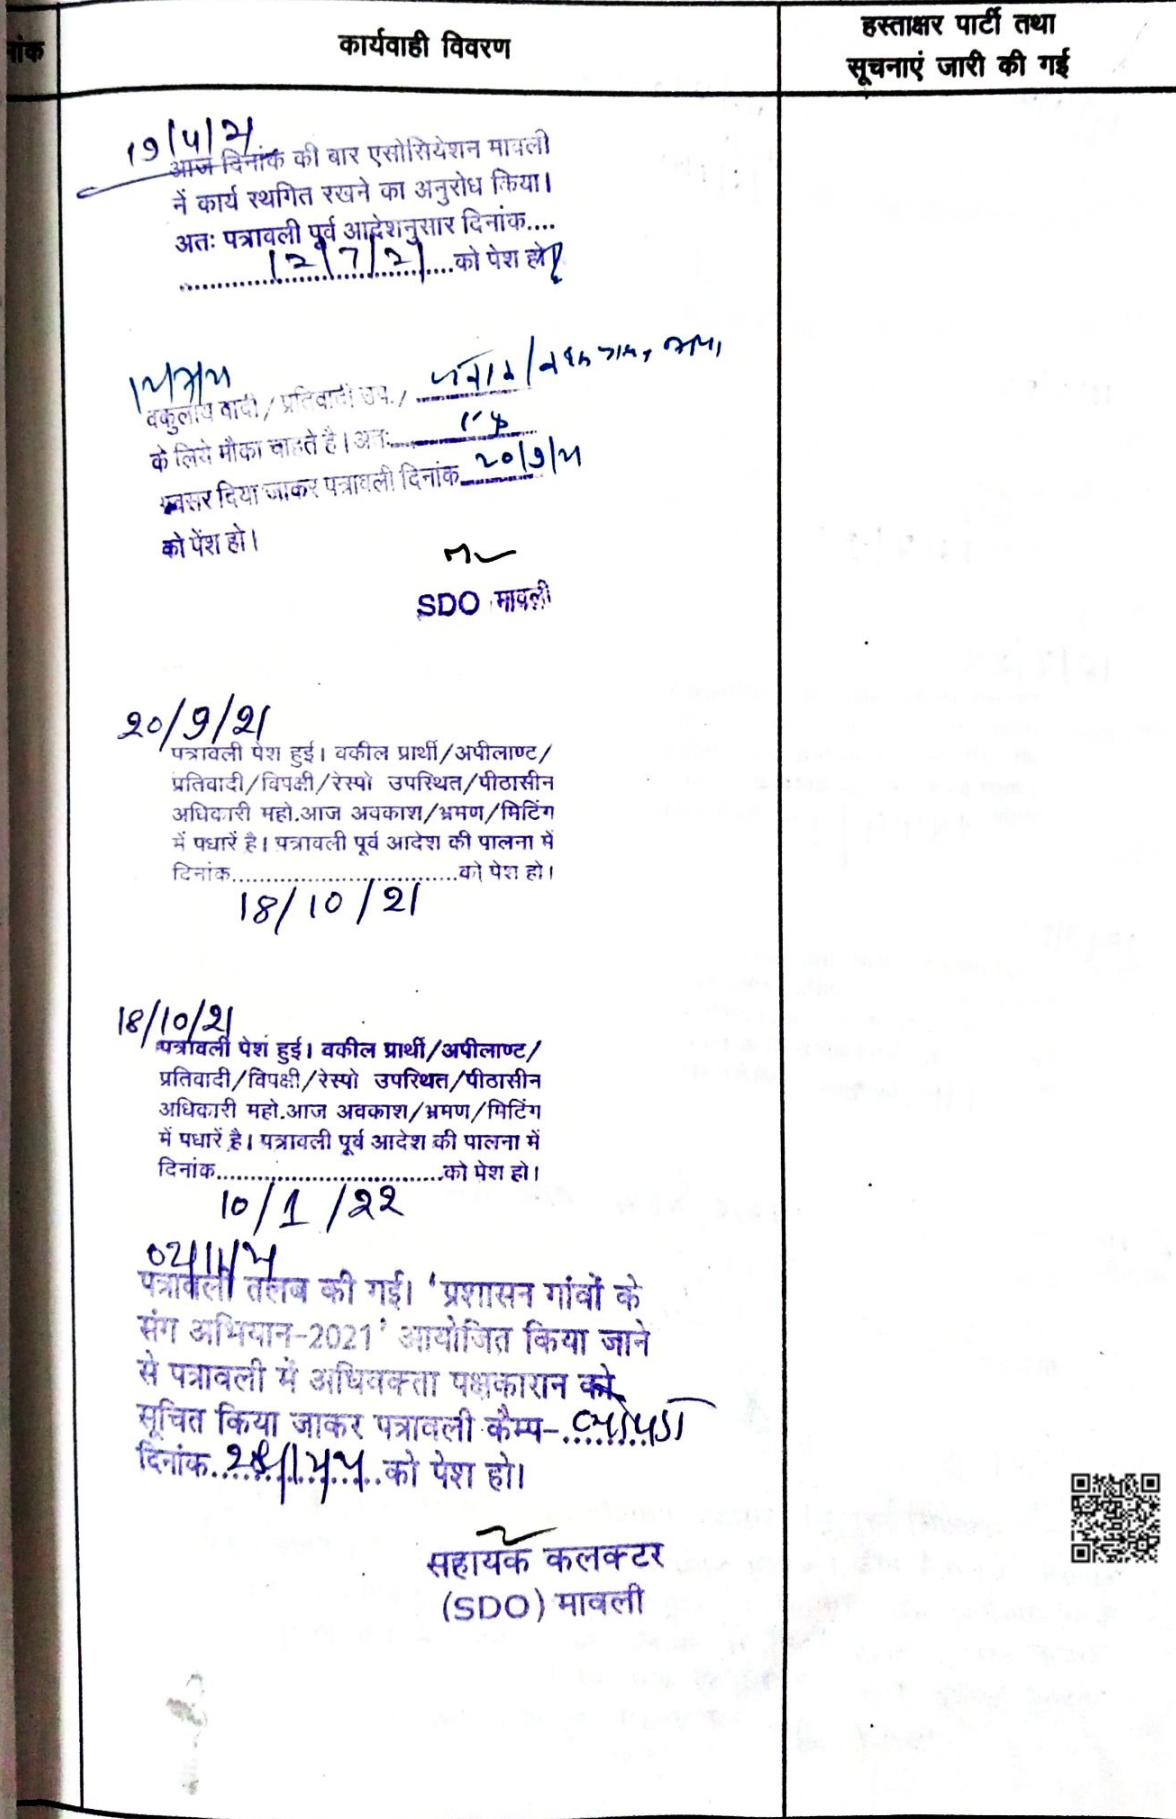 नांक
कार्यवाही विवरण
हस्ताक्षर पार्टी तथा
सूचनाएं जारी की गई
19/4/21
आज दिनांक की बार एसोसियेशन मावली
नें कार्य स्थगित रखने का अनुरोध किया।
अतः पत्रावली पूर्व आदेशनुसार दिनांक....
12/7/21 को पेश हो
वकुलाय वादी / प्रतिवादी उप. /
के लिये मौका चाहते है। अतः
अवसर दिया जाकर पत्रावली दिनांक 20/9/21
को पेंश हो।
SDO मावली
20/9/21
पत्रावली पेश हुई। वकील प्रार्थी/अपीलाण्ट/
प्रतिवादी/विपक्षी/रेस्पो उपस्थित/पीठासीन
अधिकारी महो.आज अवकाश/भ्रमण/मिटिंग
में पधारें है। पत्रावली पूर्व आदेश की पालना में
दिनांक................................को पेश हो।
18/10/21
18/10/21
पत्रावली पेश हुई। वकील प्रार्थी/अपीलाण्ट/
प्रतिवादी/विपक्षी/रेस्पो उपस्थित/पीठासीन
अधिकारी महो.आज अवकाश/भ्रमण/मिटिंग
में पधारें है। पत्रावली पूर्व आदेश की पालना में
दिनांक................................को पेश हो।
10/1/22
02/11/21
पत्रावली तलब की गई। 'प्रशासन गांवों के
संग अभियान-2021' आयोजित किया जाने
से पत्रावली में अधिवक्ता पक्षकारान को
सूचित किया जाकर पत्रावली कैम्प-
दिनांक को पेश हो।
सहायक कलक्टर
(SDO) मावली